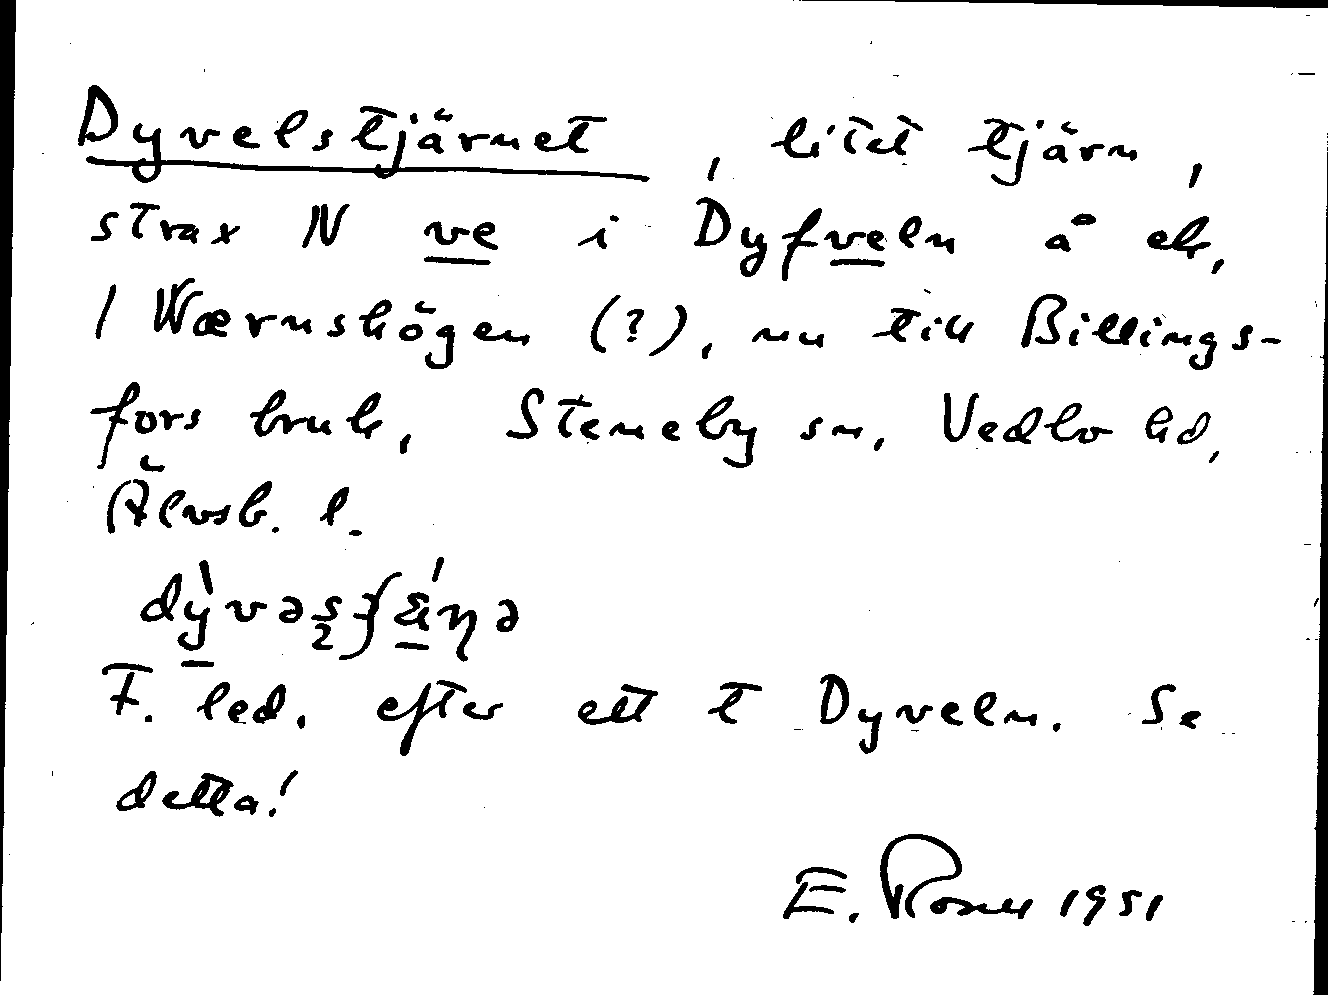 Dyvelstjärnet, litet tjärn,
strax N ve i Dyfveln å ek,
1 Wærnshögen (?), nu till Billings-
fors bruk, Steneby sn, Vedbo hd,
Älvsb. l.
F. led. efter ett t Dyveln. Se
detta!
E. Rosell 1951